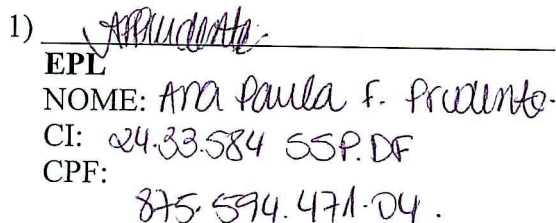 1) APPrudente.
EPL
NOME: Ana Paula F. Prudente.
CI: 24.33.584 SSP.DF
CPF:
875.594.471-04.